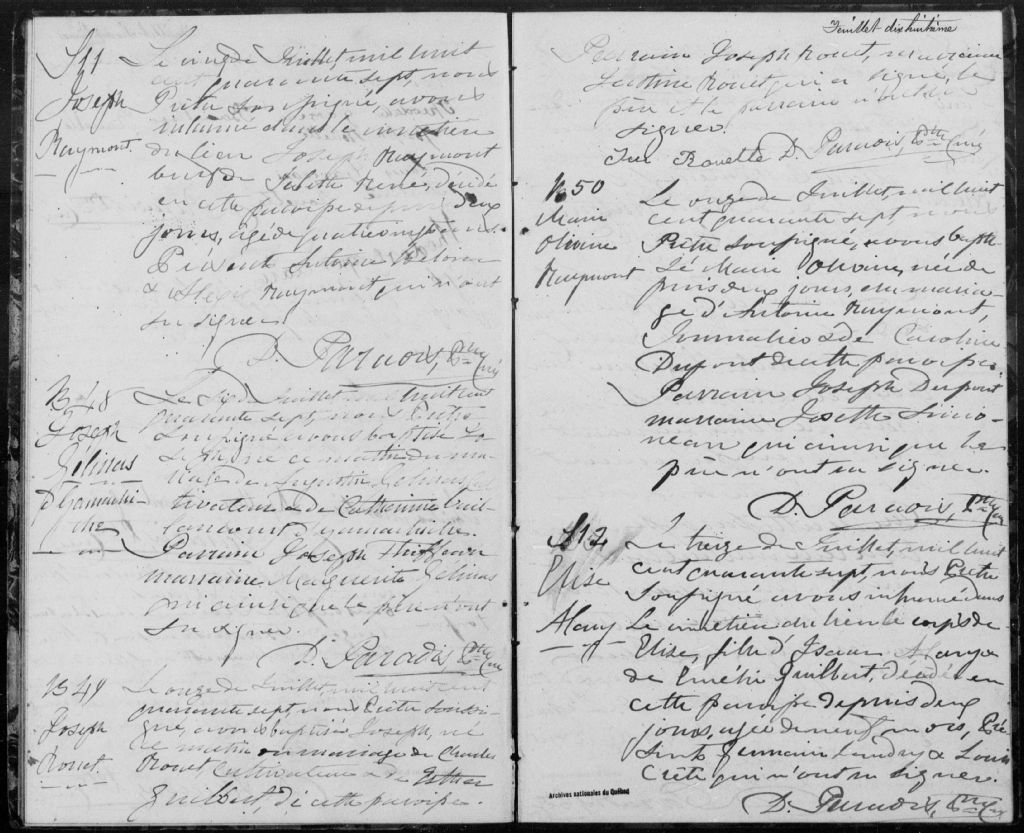 S 11
Joseph
Raymont.
Le onze de Juillet, mil huit
cent quarante sept, nous
Prêtre soussigné, avons
inhumé dans le cimetière
du lieu Joseph Raymont
de Judith René, décédé
en cette paroisse depuis deux
jours, âgé de quatre
Présents Antoine
& Alexis Raymont qui n'ont
su signer.
D. Paradis, Ptre Curé
B 48
Joseph
Gélinas
d'Yamachi-
che
Le Juillet mil huit cent
quarante sept, nous Prêtre
soussigné avons baptisé Jo-
seph né ce matin du ma-
riage de Augustin Gélinas cul-
tivateur & de Catherine
d'Yamachiche.
Parrain Joseph
marraine Marguerite Gélinas
qui ainsi que le père n'ont
su signer.
D. Paradis Ptre Curé
B 49
Joseph
Rouet.
Le onze de Juillet, mil huit cent
quarante sept, nous Prêtre soussi-
gné, avons baptisé Joseph, né
ce matin du mariage de Charles
Rouet, cultivateur & de Esther
Guilbert, de cette paroisse.
Feuillet dix huitième
Parrain Joseph Rouet, marraine
Justine Rouet qui a signé, le
père et le parrain n'ont su
signer.
Jus Rouette D. Paradis, Ptre Curé
B 50
Marie
Olivine
Raymont
Le onze de Juillet, mil huit
cent quarante sept, nous
Prêtre soussigné, avons bapti-
sé Marie Olivine, née de-
puis deux jours, du maria-
ge d'Antoine Raymont,
Journalier & de Caroline
Dupont de cette paroisse.
Parrain Joseph Dupont
marraine Josette Simo-
neau qui ainsi que le
père n'ont su signer.
D. Paradis, Ptre Curé
S 12
Elise
Le treize de Juillet, mil huit
cent quarante sept, nous Prêtre
soussigné avons inhumé dans
le cimetière du lieu le corps de
Elise, fille d'Isaac &
de Emélie Guilbert, décédée en
cette paroisse depuis deux
jours, agée de neuf mois, Pré-
sents Germain Landry & Louis
Crête qui n'ont su signer.
D. Paradis, Ptre Curé
Archives nationales du Québec